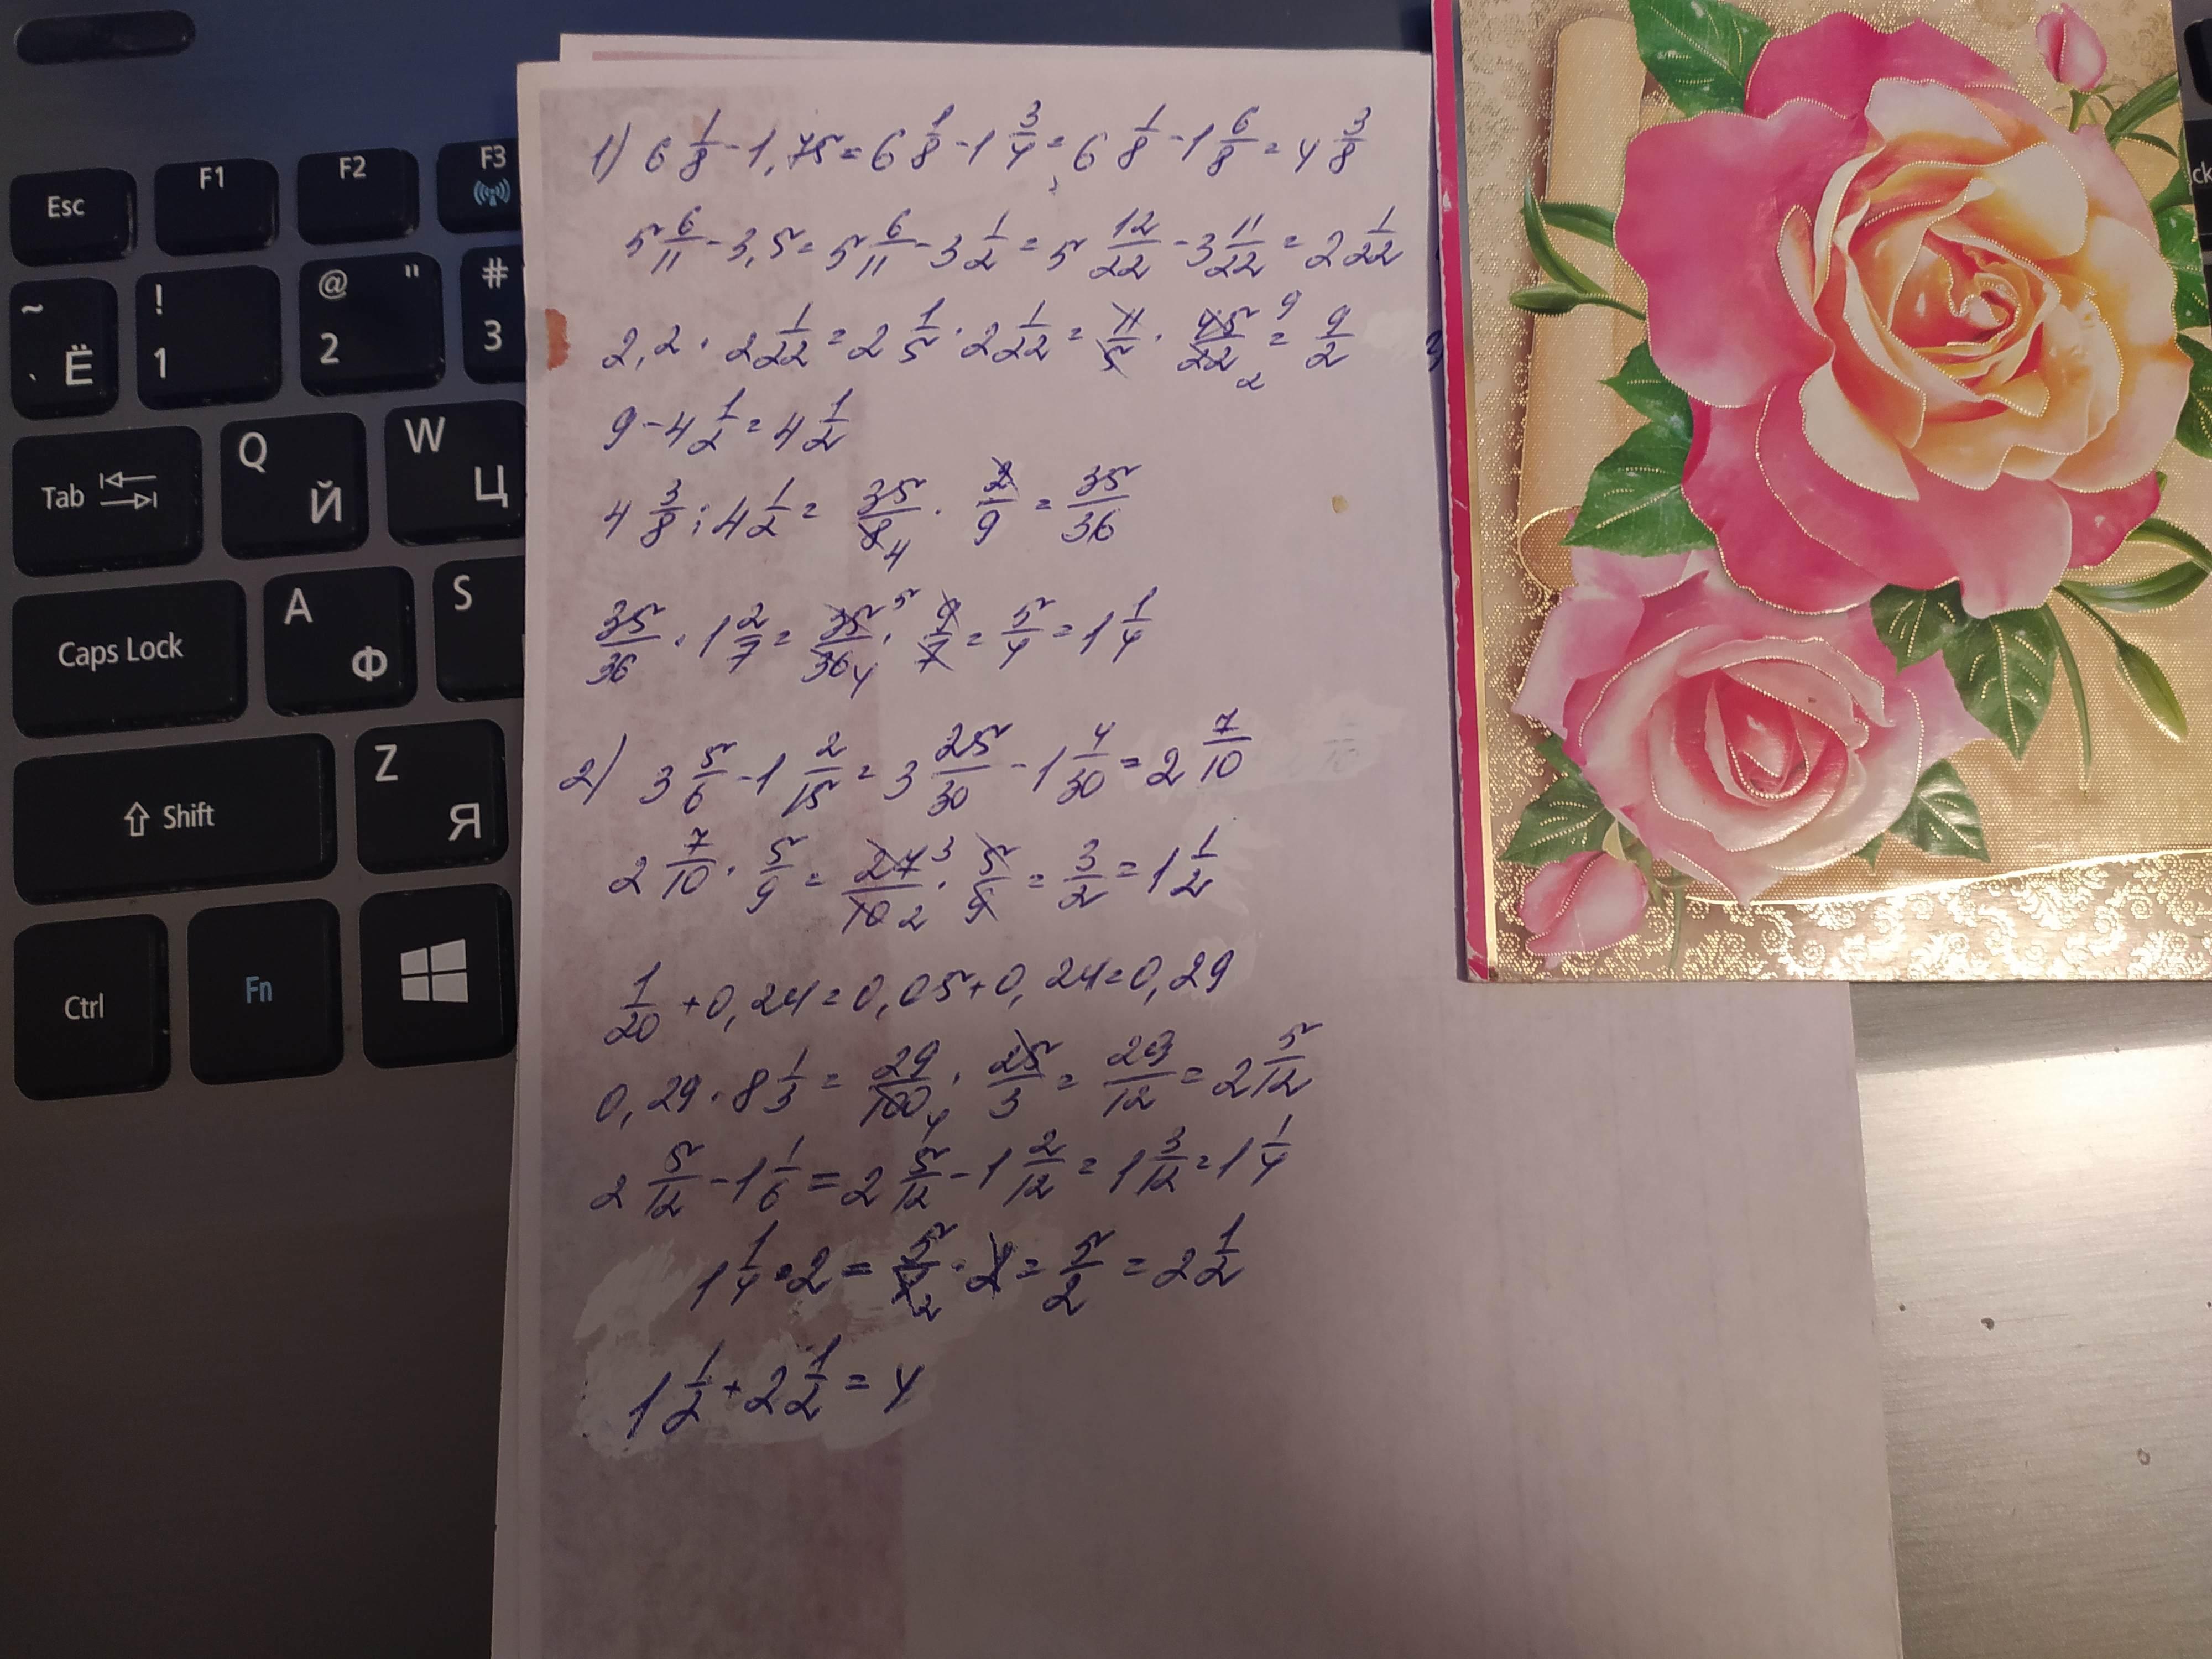 Esc F1 F2 F3
~ ` Ё ! 1 @ " 2 # 3
Tab Q Й W Ц
Caps Lock A Ф S
Shift Z Я
Ctrl Fn
1) 6 1/8 - 1,75 = 6 1/8 - 1 3/4 = 6 1/8 - 1 6/8 = 4 3/8
5 6/11 - 3,5 = 5 6/11 - 3 1/2 = 5 12/22 - 3 11/22 = 2 1/22
2,2 · 2 1/22 = 2 1/5 · 2 1/22 = 11/5 · 45/22 9 2 = 9/2
9 - 4 1/2 = 4 1/2
4 3/8 : 4 1/2 = 35/8 4 · 2/9 = 35/36
35/36 · 1 2/7 = 35/36 5 4 · 9/7 = 5/4 = 1 1/4
2) 3 5/6 - 1 2/15 = 3 25/30 - 1 4/30 = 2 7/10
2 7/10 · 5/9 = 27/10 3 2 · 5/9 = 3/2 = 1 1/2
1/20 + 0,24 = 0,05 + 0,24 = 0,29
0,29 · 8 1/3 = 29/100 4 · 25/3 = 29/12 = 2 5/12
2 5/12 - 1 1/6 = 2 5/12 - 1 2/12 = 1 3/12 = 1 1/4
1 1/4 · 2 = 5/4 2 · 2 = 5/2 = 2 1/2
1 1/2 + 2 1/2 = 4